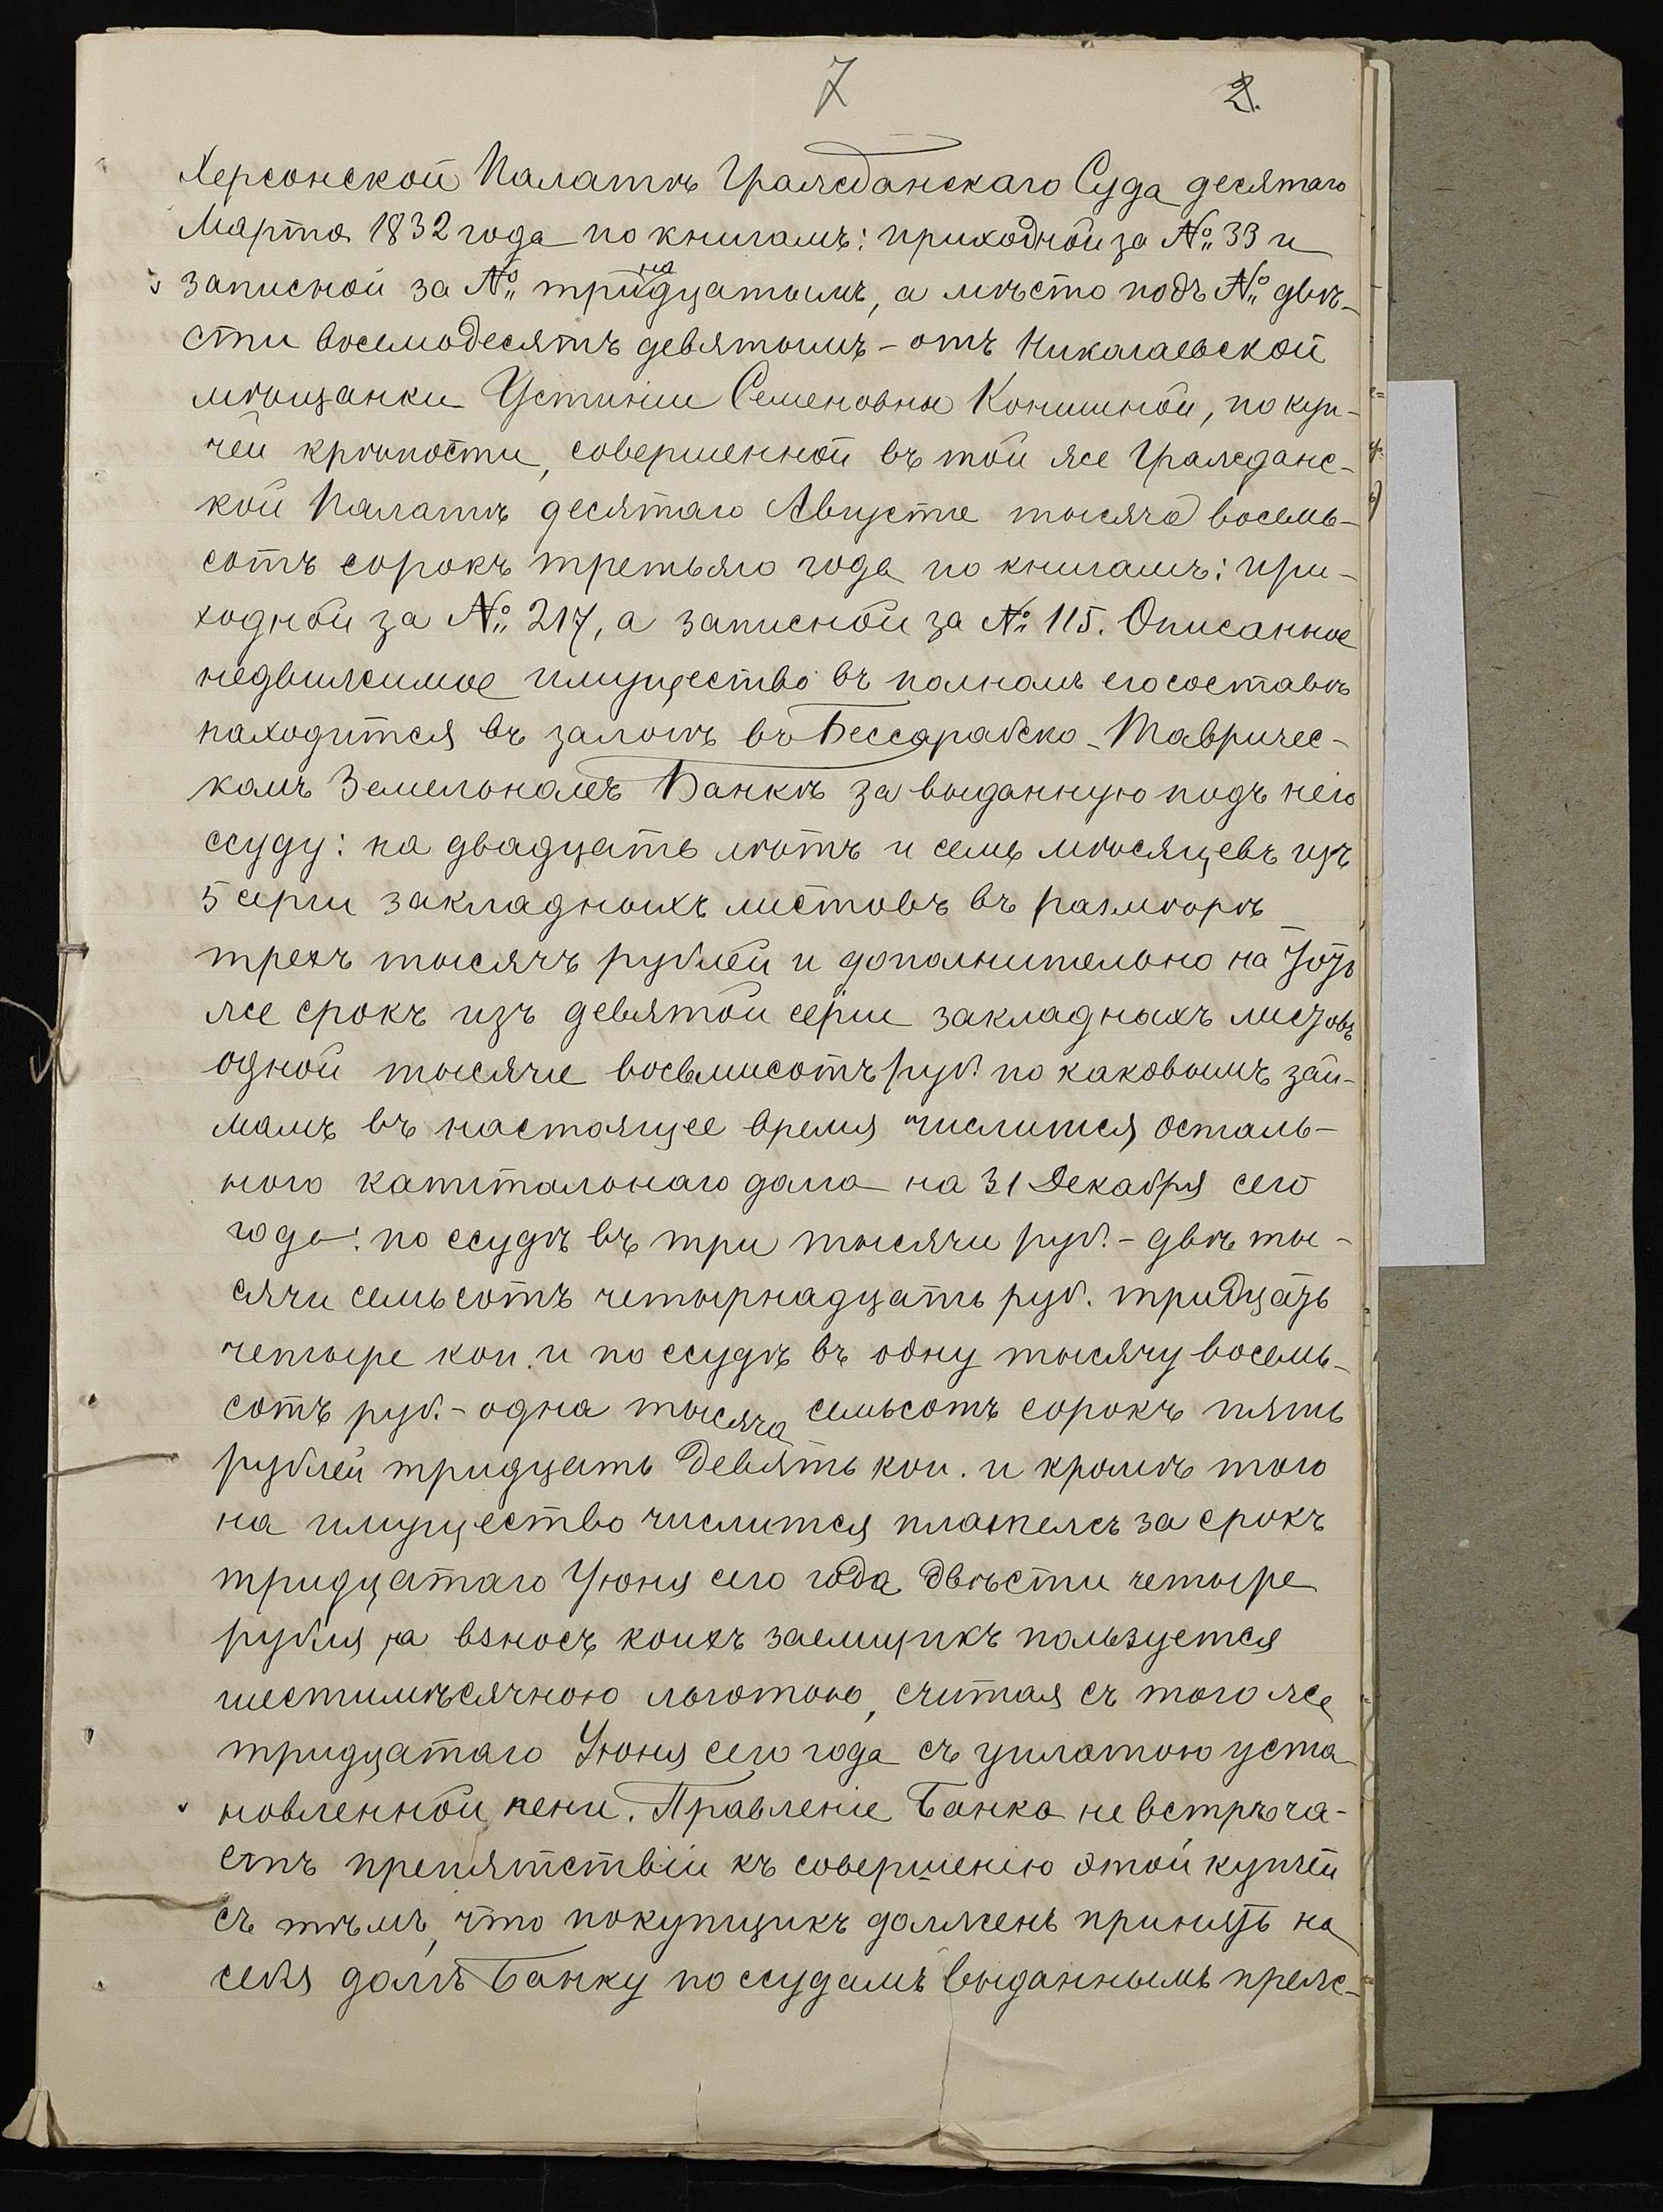 7
2.
Херсонской Палатѣ Гражданскаго Суда десятаго
Марта 1832 года по книгамъ: приходной за № 33 и
записной за № тринадцатымъ, а мѣсто подъ № двѣ-
сти восемьдесятъ девятымъ – отъ Николаевской
мѣщанки Устиніи Семеновны Коншиной, по куп-
чей крѣпости, совершенной въ той же Гражданс-
кой Палатѣ десятаго Августа тысяча восемь-
сотъ сорокъ третьяго года по книгамъ: при-
ходной за № 217, а записной за № 115. Описанное
недвижимое имущество въ полномъ его составѣ
находится въ залогѣ въ Бессарабско-Тавричес-
комъ Земельномъ Банкѣ за выданную подъ него
ссуду: на двадцать лѣтъ и семь мѣсяцевъ изъ
5 серіи закладныхъ листовъ въ размѣрѣ
трехъ тысячъ рублей и дополнительно на тотъ
же срокъ изъ девятой серіи закладныхъ листовъ
одной тысячи восьмисотъ руб. по каковымъ зай-
мамъ въ настоящее время числится осталь-
ного капитальнаго долга на 31 Декабря сего
года: по ссудѣ въ три тысячи руб. – двѣ ты-
сячи семьсотъ четырнадцать руб. тридцать
четыре коп. и по ссудѣ въ одну тысячу восемь-
сотъ руб. – одна тысяча семьсотъ сорокъ пять
рублей тридцать девять коп. и кромѣ того
на имущество числится платежъ за срокъ
тридцатаго Іюня сего года двѣсти четыре
рубля, на взносъ коихъ заемщикъ пользуется
шестимѣсячною льготою, считая съ того же
тридцатаго Іюня сего года съ уплатою уста
новленной пени. Правленіе Банка не встрѣча-
етъ препятствій къ совершенію этой купчей
съ тѣмъ, что покупщикъ долженъ принять на
себя долгъ Банку по ссудамъ выданнымъ преж-